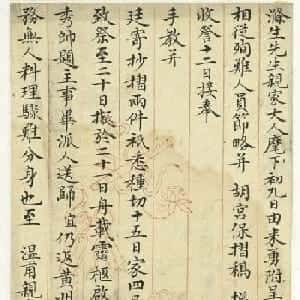 濬生先生親家大人麾下初九日由来勇附呈
相從殉難人員節略并 胡宮保摺稿
收詧十二日接奉
手教并
廷寄抄摺兩件祇悉種切十五日家四
致祭至二十日擬於二十一日舟載靈柩啟
秀師題主事畢派人送歸 宜仍返黄州
務無人料理驟難分身也至 温甫親